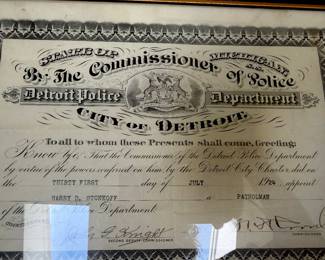 STATE OF MICHIGAN
By The Commissioner of Police
Detroit Police Department
CITY OF DETROIT.
To all to whom these Presents shall come, Greeting:
Know ye, That the Commissioner of the Detroit Police Department
by virtue of the powers conferred on him by the Detroit City Charter, did on
the THIRTY FIRST day of JULY 1924, appoint
HARRY D. STONKOFF a PATROLMAN
of the Detroit Police Department.
SECOND DEPUTY COMMISSIONER
COMMISSIONER